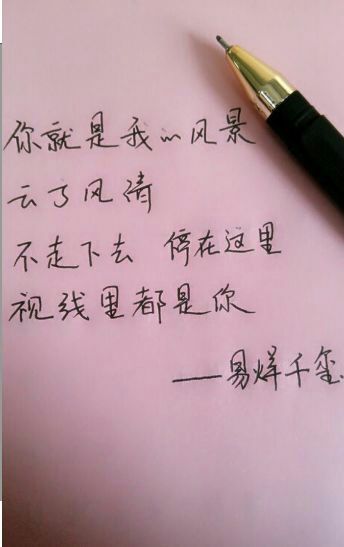 你就是我的风景
云了风清
不走下去 停在这里
视线里都是你
——易烊千玺